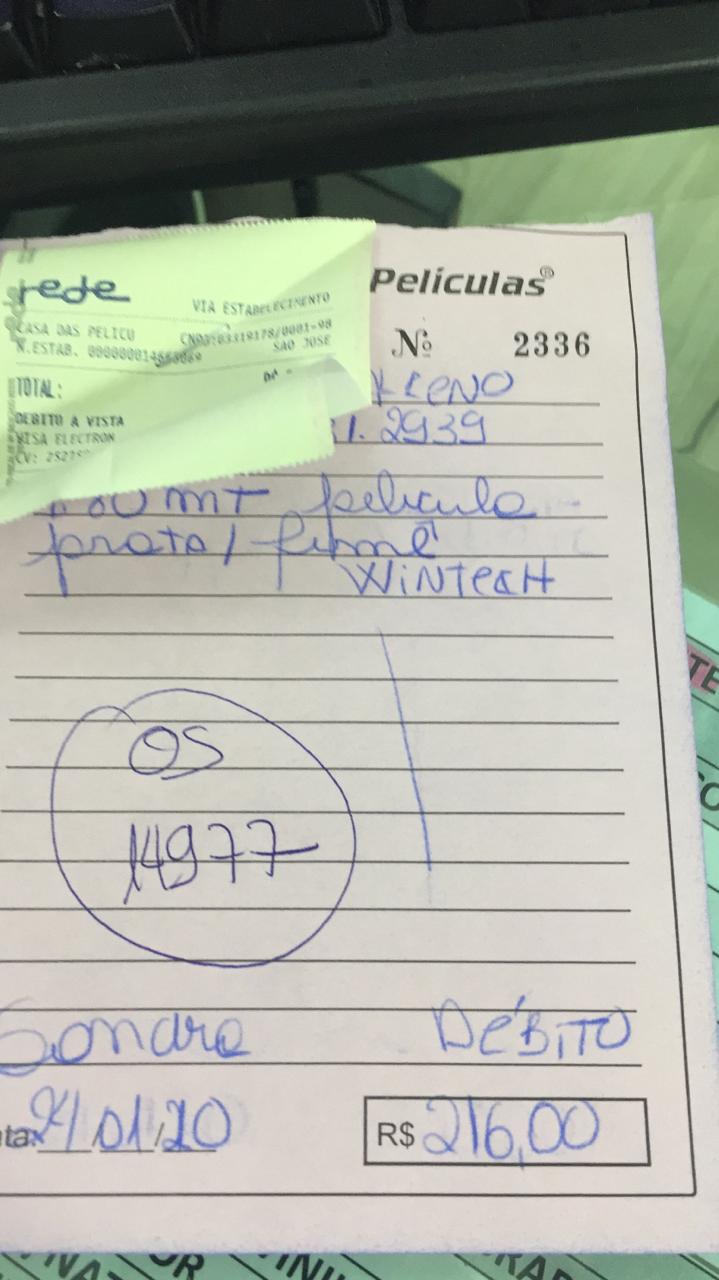 rede
VIA ESTABELECIMENTO
CASA DAS PELICU CNPJ:03319178/0001-98
N.ESTAB. SAO JOSE
TOTAL:
DEBITO A VISTA
VISA ELECTRON
CV:
Películas®
Nº 2336
2939
mt pelicula
prata/fumê
WINTECH
OS
14977
Sandra DÉBITO
/01/20
R$ 216,00